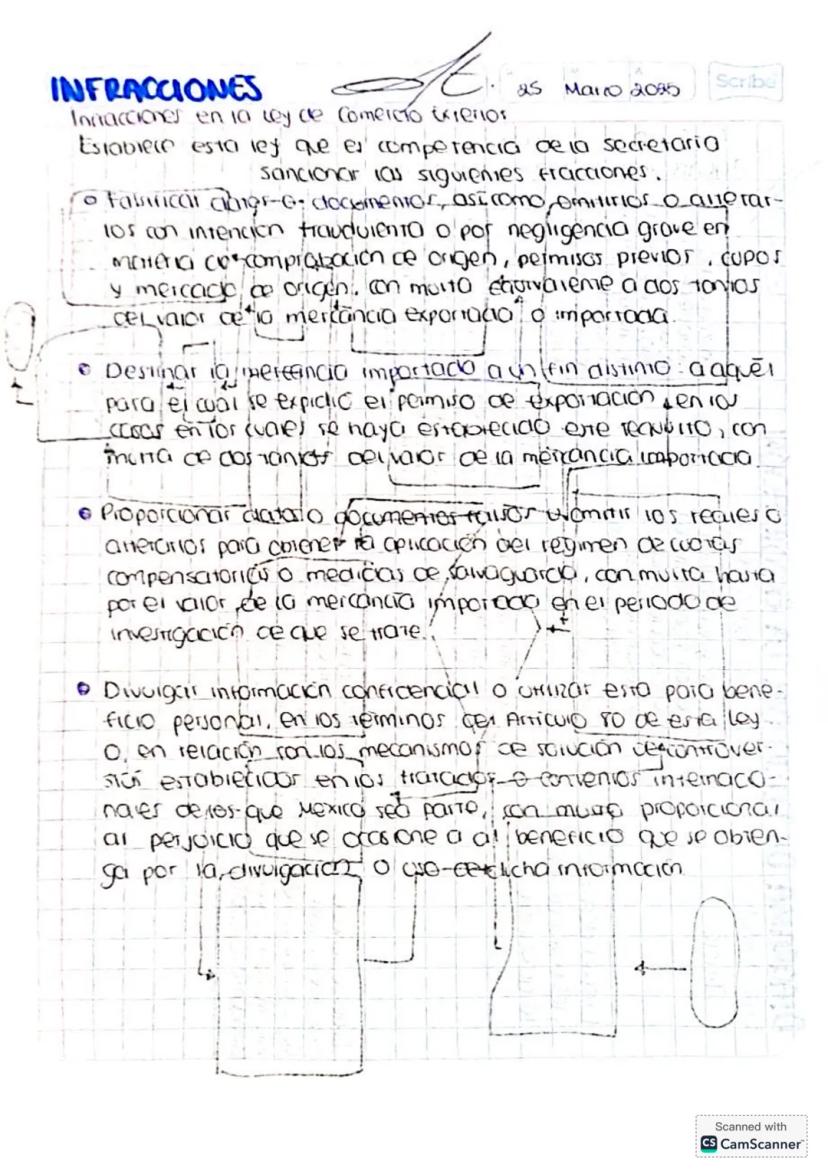 INFRACCIONES 25 Marzo 2025 Scribe
Infracciones en la Ley de Comercio Exterior
Establece esta ley que es competencia de la secretaria
sancionar las siguientes fracciones.
Falsificar datos o documentos, así como, omitirlos o alterar-
los con intención fraudulenta o por negligencia grave en
materia de comprobación de origen, permisos previos, cupos
y mercado de origen, con multa equivalente a dos tantos
del valor de la mercancía exportada o importada.
Destinar la mercancia importada a un fin distinto a aquél
para el cuál se expidió el permiso de exportación, en los
casos en los cuales se haya establecido este requisito, con
multa de dos tantos del valor de la mercancía importada.
Proporcionar datos o documentos falsos u omitir los o
alterarlos para obtener la aplicación del regimen de cuotas
compensatorias o medidas de salvaguarda, con multa hasta
por el valor de la mercancía importada en el periodo de
investigación de que se trate.
Divulgar información confidencial o utilizar esta para bene-
ficio personal, en los términos del Artículo 80 de esta ley
o, en relación con los mecanismos de solución de controver-
sias establecidos en los tratados o convenios internacio-
nales de los que México sea parte, con multa proporcional
al perjuicio que se ocasione a al beneficio que se obten-
ga por la divulgación o uso de dicha información
Scanned with
CS CamScanner